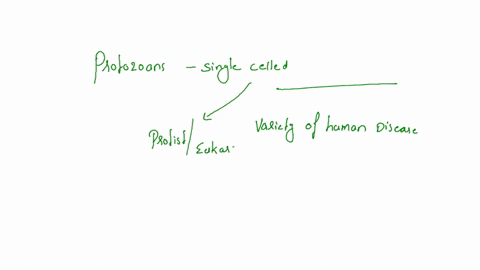 Protozoans - single celled
Protist/Eukar.
Variety of human Disease